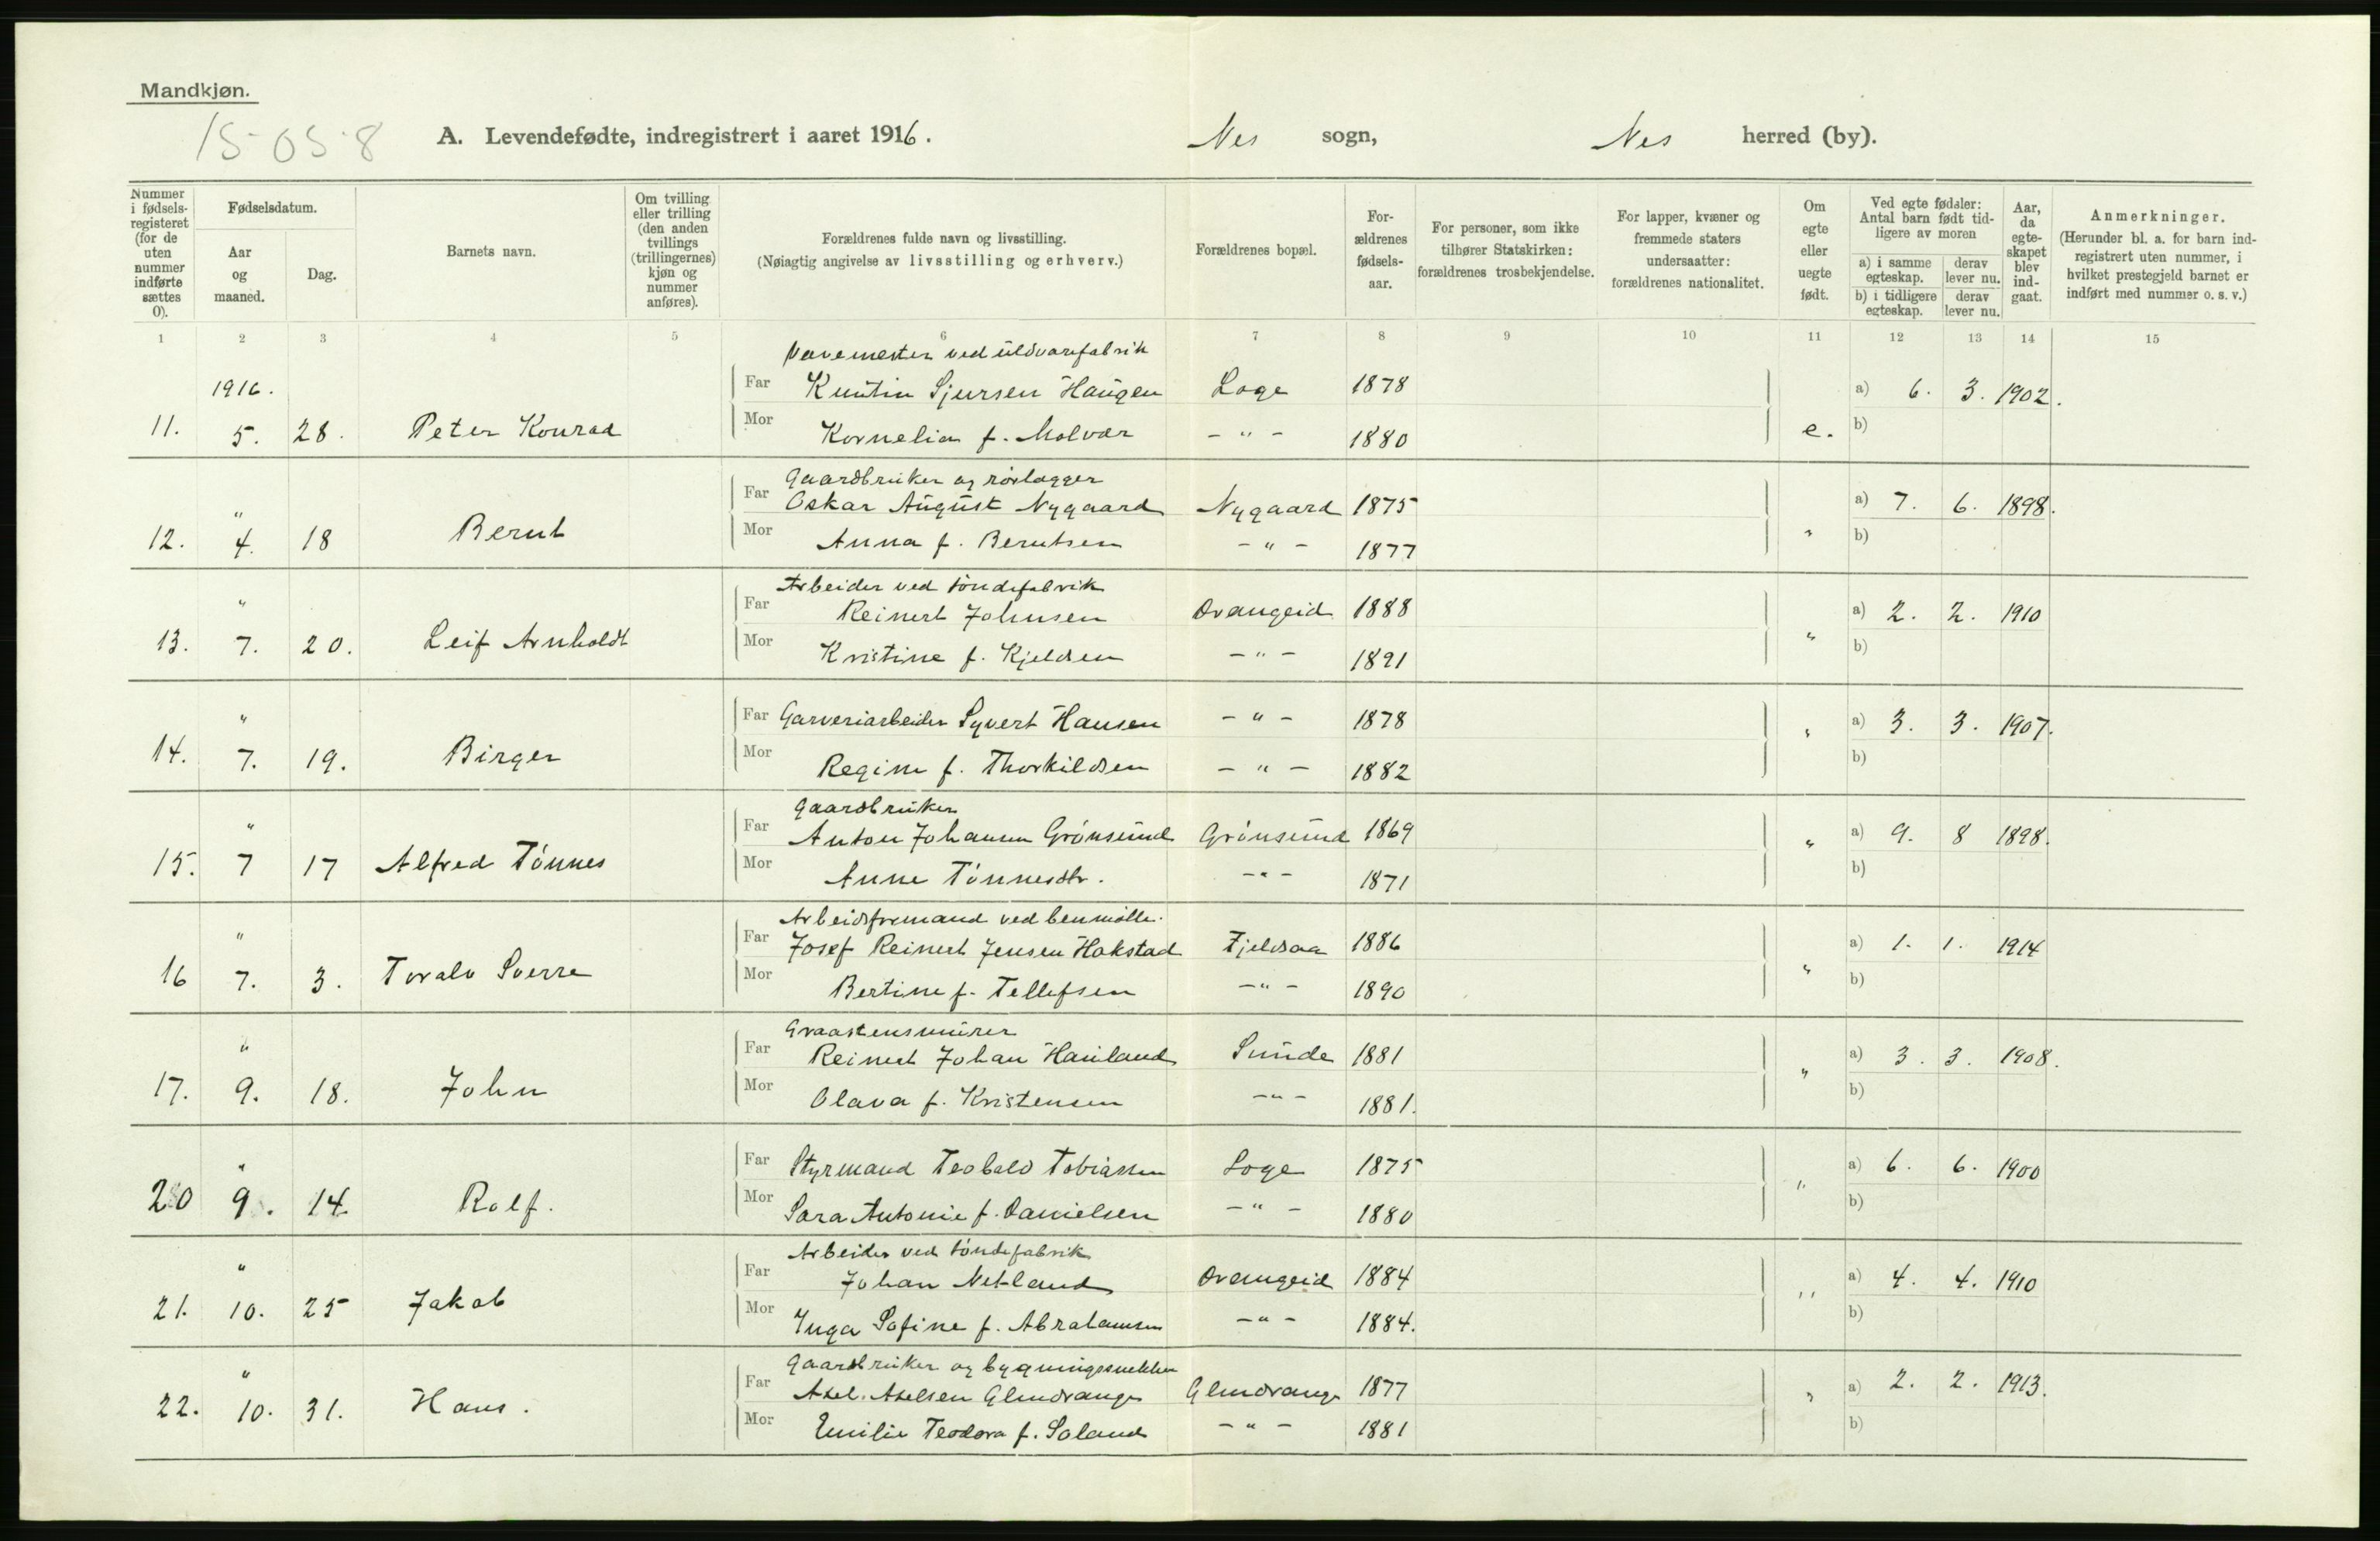 Mandkjøn.
15-05-8
A. Levendefødte, indregistrert i aaret 1916. Nes sogn, Nes herred (by).
Nummer i fødselsregisteret (for de uten nummer indførte sættes 0).
Fødselsdatum.
Aar og maaned.
Dag.
Barnets navn.
Om tvilling eller trilling (den anden tvillings (trillingernes) kjøn og nummer anføres).
Forældrenes fulde navn og livsstilling.
(Nøiagtig angivelse av livsstilling og erhverv.)
Forældrenes bopæl.
Forældrenes fødselsaar.
For personer, som ikke tilhører Statskirken: forældrenes trosbekjendelse.
For lapper, kvæner og fremmede staters undersaatter: forældrenes nationalitet.
Om egte eller uegte født.
Ved egte fødsler: Antal barn født tidligere av moren
a) i samme egteskap. derav lever nu.
b) i tidligere egteskap. derav lever nu.
Aar, da egteskapet blev indgaat.
Anmerkninger.
(Herunder bl. a. for barn indregistrert uten nummer, i hvilket prestegjeld barnet er indført med nummer o. s. v.)
1 2 3 4 5 6 7 8 9 10 11 12 13 14 15
Vævemester ved uldvarefabrik
1916. Far Sjursen Haugen Loge 1878 a) 6. 3. 1902.
11. 5. 28. Peter Konrad Mor Kornelia f. Molvær - " - 1880 e. b)
Gaardbruker og rørlægger
" Far Oskar August Nygaard Nygaard 1875 a) 7. 6. 1898.
12. 4. 18 Bernt Mor Anna f. Berntsen - " - 1877 " b)
Arbeider ved tøndefabrik
" Far Reinert Johnsen Drangeid 1888 a) 2. 2. 1910
13. 7. 20. Leif Arnholdt Mor Kristine f. Kjeldsen - " - 1891 " b)
" Far Garveriarbeider Syvert Hansen - " - 1878 a) 3. 3. 1907.
14. 7. 19. Birger Mor Regine f. Thorkildsen - " - 1882 " b)
Gaardbruker
" Far Anton Johannes Grønsund Grønsund 1869 a) 9. 8 1898.
15. 7 17 Alfred Tønnes Mor Anne Tønnesdtr. - " - 1871 " b)
Arbeidsformand ved benmølle.
" Far Josef Reinert Jensen Hakstad Fjeldsaa 1886 a) 1. 1. 1914
16 7. 3. Toralv Sverre Mor Bertine f. Tellefsen - " - 1890 " b)
Graastensmurer
" Far Reinert Johan Hauland Sunde 1881 a) 3. 3. 1908.
17. 9. 18. John Mor Olava f. Kristensen - " - 1881. " b)
" Far Styrmand Teobald Tobiassen Loge 1875 a) 6. 6. 1900
20 9. 14. Rolf. Mor Sara Antonie f. Danielsen - " - 1880 " b)
Arbeider ved tøndefabrik
" Far Johan Netland Drangeid 1884 a) 4. 4. 1910
21. 10. 25 Jakob Mor Inga Sofine f. Abrahamsen - " - 1884. " b)
Gaardbruker og bygningssnekker
" Far Axel Axelsen Glendrange Glendrange 1877 a) 2. 2. 1913.
22. 10. 31. Hans. Mor Emilie Teodora f. Soland - " - 1881 " b)